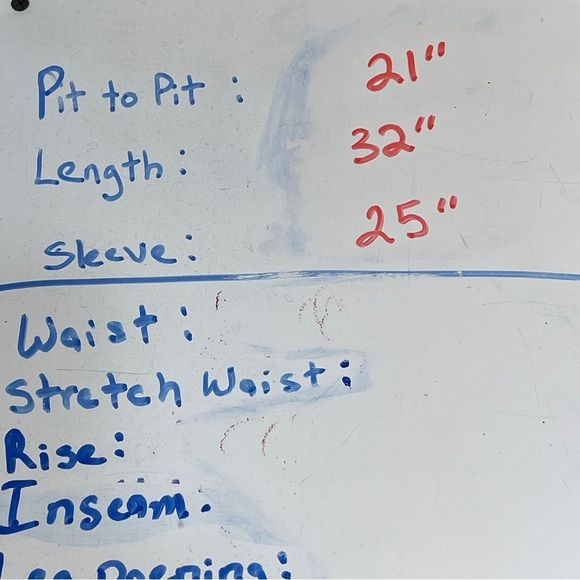 Pit to Pit : 21"
Length : 32"
Sleeve: 25"
Waist :
Stretch Waist :
Rise:
Inseam.
Leg Opening: